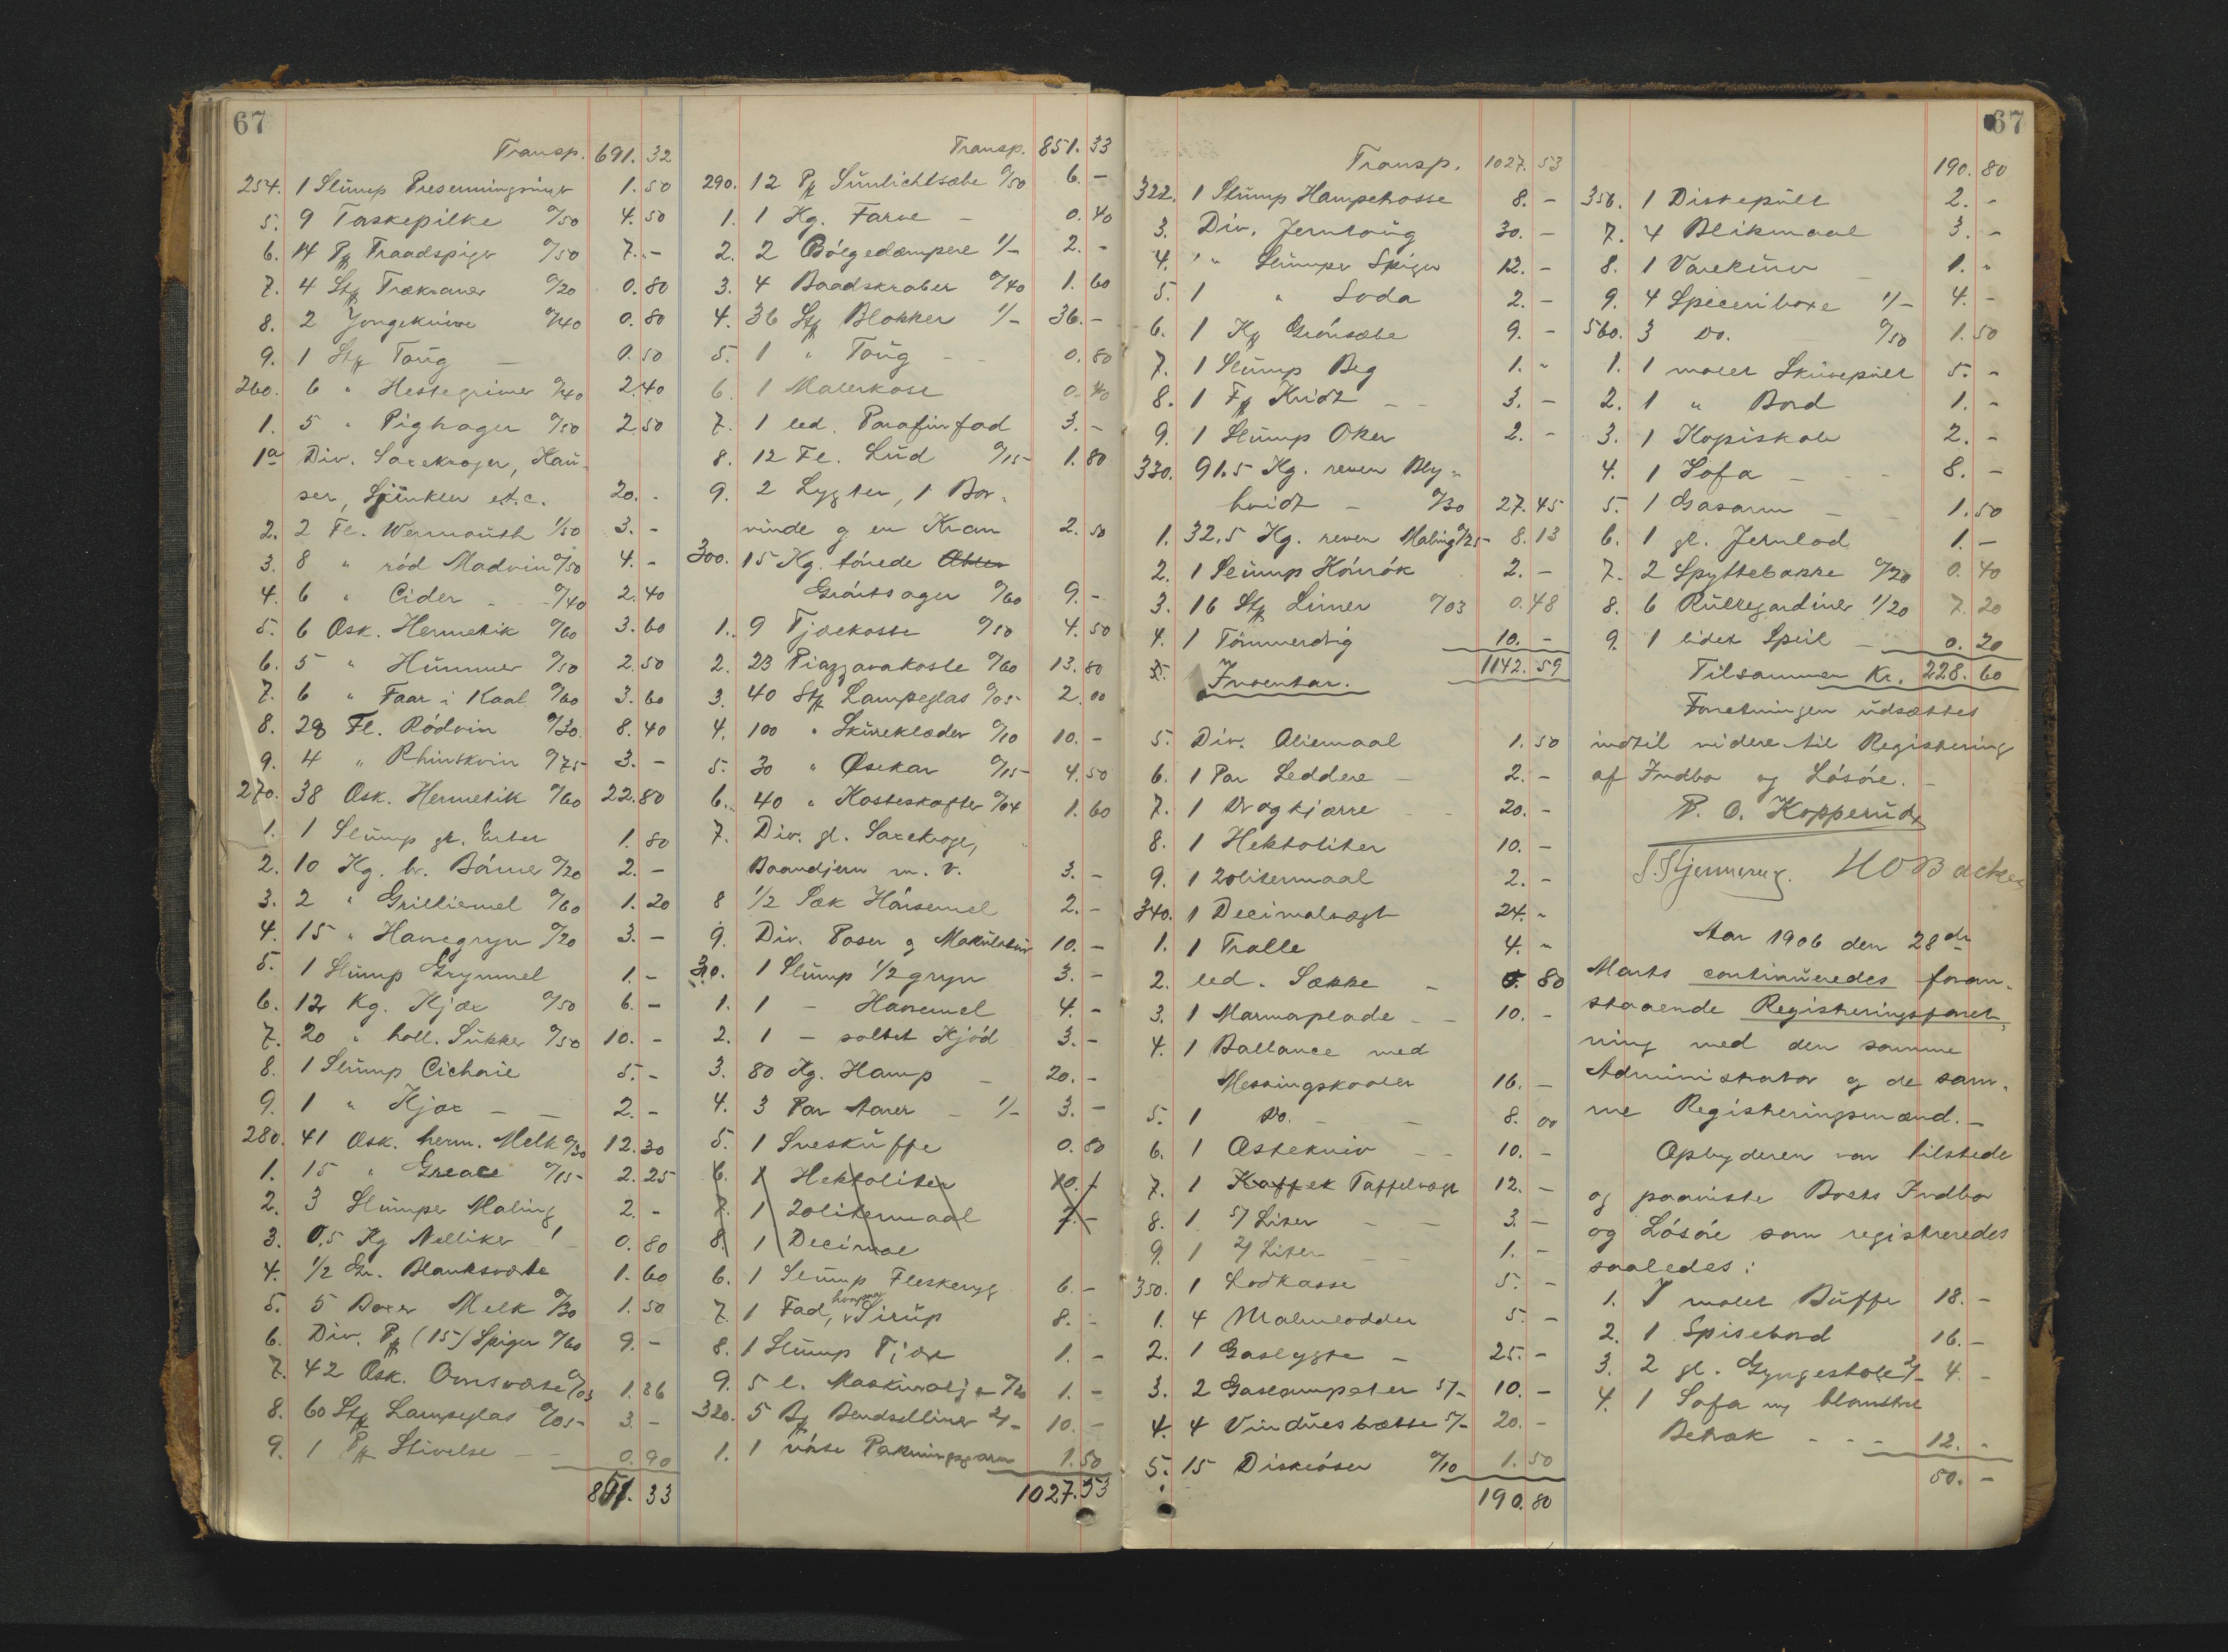 67
Transp. 691. 32
254. 1 Slump Presenningsduk 1. 50
5. 9 Taskepilke 0/50 4. 50
6. 14 Pk Traadspiger 0/50 7. -
7. 4 Stk Trækraner 0/20 0. 80
8. 2 Jongeknive 0/40 0. 80
9. 1 Stk Toug - 0. 50
260. 6 " Hestegrimer 0/40 2. 40
1. 5 " Pighager 0/50 2. 50
1a Div. Saxekroger, Hau-
ser, Sjünkler etc. 20. -
2. 2 Fl. Wermouth 1/50 3. -
3. 8 " rød Madvin 0/50 4. -
4. 6 " Cider - - 0/40 2. 40
5. 6 Æsk. Hermetik 0/60 3. 60
6. 5 " Hummer 0/50 2. 50
7. 6 " Faar i Kaal 0/60 3. 60
8. 28 Fl. Rødvin 0/30 8. 40
9. 4 " Rhinskvin 0/75 3. -
270. 38 Æsk. Hermetik 0/60 22. 80
1. 1 Slump gr. Erter 1. 80
2. 10 Kg. br. Bønner 0/20 2. -
3. 2 " Grilliemel 0/60 1. 20
4. 15 " Havregryn 0/20 3. -
5. 1 Slump Grynmel 1. -
6. 12 Kg. Kjæx 0/50 6. -
7. 20 " holl. Sukker 0/50 10. -
8. 1 Slump Cichorie 5. -
9. 1 " Kjæx - - 2. -
280. 41 Æsk. herm. Melk 0/30 12. 30
1. 15 " Greace 0/15 2. 25
2. 3 Slumper Maling 2. -
3. 0,5 Kg Nelliker 1 0. 80
4. 1/2 Gr. Blanksværte 1. 60
5. 5 Boxer Melk 0/30 1. 50
6. Div. Pk (15) Spiger 0/60 9. -
7. 42 Æsk. Ovnsværte 0/03 1. 26
8. 60 Stk Lampeglas 0/05 3. -
9. 1 Pk Stivelse - - 0. 90
851. 33
Transp. 851. 33
290. 12 Pk Sunlichtsæbe 0/50 6. -
1. 1 Kg. Farve - 0. 40
2. 2 Bølgedæmpere 1/- 2. -
3. 4 Baadskraber 0/40 1. 60
4. 36 Stk Blokker 1/- 36. -
5. 1 " Toug - - 0. 80
6. 1 Malerkase 0. 40
7. 1 led. Parafinfad 3. -
8. 12 Fl. Lud 0/15 1. 80
9. 2 Lygter, 1 Bor-
vinde og en Kran 2. 50
300. 15 Kg. tørrede
Grøntsager 0/60 9. -
1. 9 Tjærkoste 0/50 4. 50
2. 23 Piazzavakoste 0/60 13. 80
3. 40 Stk Lampeglas 0/05 2. 00
4. 100 " Skureklæder 0/10 10. -
5. 30 " Øsekar 0/15 4. 50
6. 40 " Kosteskafter 0/04 1. 60
7. Div. gl. Saxekroge,
Baandjern m. v. 3. -
8 1/2 Sæk Hønsemel 2. -
9. Div. Poser og Makulatur 10. -
310. 1 Slump 1/2 gryn 3. -
1. 1 - Havremel 4. -
2. 1 - saltet Kjød 3. -
3. 80 Kg. Hamp - 20. -
4. 3 Par Aarer - 1/- 3. -
5. 1 Sneskuffe 0. 80
6. 1 Hektoliter 10. -
7. 1 20litermaal 2. -
8. 1 Decimal
6. 1 Slump Fleskeryg 6. -
7. 1 Fad, Sirup 8. -
8. 1 Slump Tjære 1. -
9. 5 l. Maskinolje 0/20 1. -
320. 5 Bk Bendselliner 2/- 10. -
1. 1 Pakningsgarn 1. 50
1027. 53
67
Transp. 1027. 53
322. 1 Slump Hampetrosse 8. -
3. Div. Jerntoug 30. -
4. " Slumper Spiger 12. -
5. 1 " Soda 2. -
6. 1 Kk Grønsæbe 9. -
7. 1 Slump Beg 1. -
8. 1 Fk Kridt - - 3. -
9. 1 Slump Oker 2. -
330. 91.5 Kg. reven Bly-
hvidt - 0/30 27. 45
1. 32,5 Kg. reven Maling 0/25 8. 13
2. 1 Slump Kønrøk 2. -
3. 16 Stk Limer 0/03 0. 48
4. 1 Tømmerdrig 10. -
1142. 59
Inventar.
5. Div. Oliemaal 1. 50
6. 1 Par Leddere - 2. -
7. 1 Dragkjærre - - 20. -
8. 1 Hektoliter 10. -
9. 1 20litermaal 2. -
340. 1 Decimalvægt 24. -
1. 1 Tralle 4. -
2. led. Sække - 0. 80
3. 1 Marmaplade - - 10. -
4. 1 Ballance med
Messingskaaler 16. -
5. 1 Do. - - 8. 00
6. 1 Ostekniv - - 10. -
7. 1 Kaffek Taffelvægt 12. -
8. 1 5/ Liter - - 3. -
9. 1 2/ Liter - - 1. -
350. 1 Lodkasse 5. -
1. 4 Malmlodder 5. -
2. 1 Gaslygte - 25. -
3. 2 Gaslampetter 5/- 10. -
4. 4 Vinduesbrætte 5/- 20. -
5. 15 Diskeøser 0/10 1. 50
190. 80
67
190. 80
356. 1 Diskepult 2. -
7. 4 Blikmaal 3. -
8. 1 Varekurv - 1. -
9. 4 Speceriboxe 1/- 4. -
560. 3 Do. 0/50 1. 50
1. 1 malet Skrivepult 5. -
2. 1 " Bord 1. -
3. 1 Kopiskab 2. -
4. 1 Sofa - - - 8. -
5. 1 Gasarm - - 1. 50
6. 1 gl. Jernlod 1. -
7. 2 Spyttebakke 0/20 0. 40
8. 6 Rullegardiner 1/20 7. 20
9. 1 lidet Speil - 0. 20
Tilsammen Kr. 228. 60
Forretningen udsættes
indtil videre til Registrering
af Indbo og Løsøre. -
P. O. Kopperud
HOBacker
Aar 1906 den 28de
Marts continueredes foran-
staaende Registreringsforret-
ning med den samme
Administrator og de sam-
me Registreringsmænd. -
Opbyderen var tilstede
og paaviste Boets Indbo
og Løsøre som registreredes
saaledes:
1. 1 malet Buffe 18. -
2. 1 Spisebord 16. -
3. 2 gl. Gyngestole 2/- 4. -
4. 1 Sofa m/ blomstret
Betræk - - - 12. -
50. -